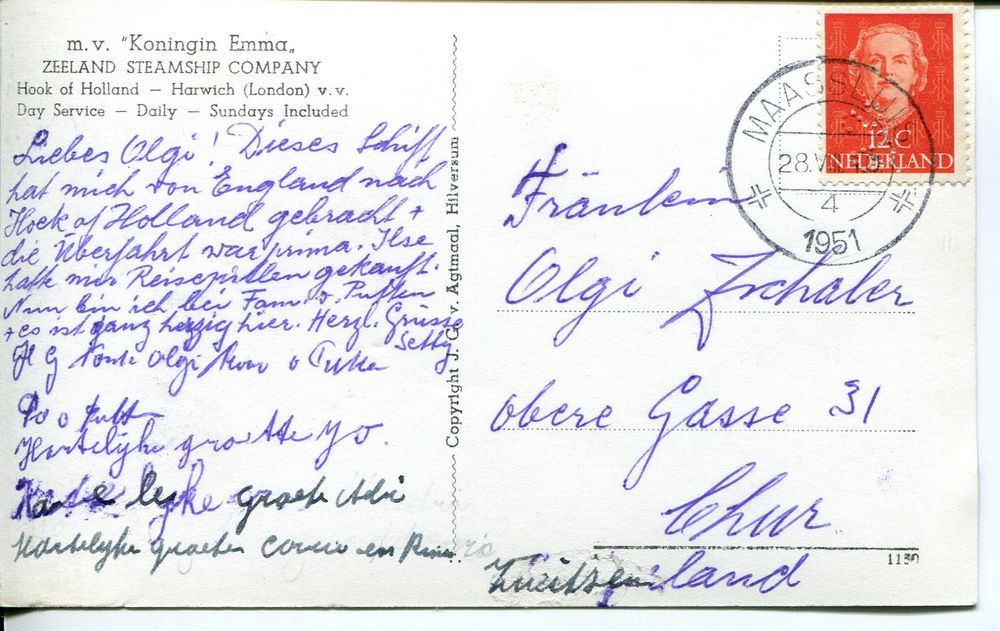 m.v. "Koningin Emma„
ZEELAND STEAMSHIP COMPANY
Hook of Holland – Harwich (London) v.v.
Day Service – Daily – Sundays Included
Liebes Olgi! Dieses Schiff
hat mich von England nach
Hoek of Holland gebracht +
die Überfahrt war prima. Ilse
hatte mir Reisepillen gekauft.
Nun bin ich bei Fam. v. Putten
+ es ist ganz herzig hier. Herzl. Grüsse
Setty
H G Tante Olgi
Hartelijke groette Jo.
groete Adri
Hartelijke groeten Corrie en
Copyright J. G. v. Agtmaal, Hilversum
NEDERLAND
12C
MAASSLUIS
28.VIII
4
1951
Fräulein
Olgi Zschaler
obere Gasse 31
Chur
1130